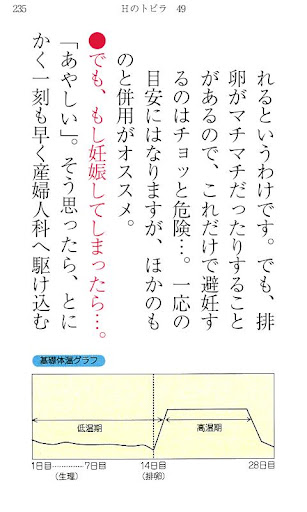 235
Hのトビラ 49
れるというわけです。でも、排
卵がマチマチだったりすること
があるので、これだけで避妊す
るのはチョッと危険…。一応の
目安にはなりますが、ほかのも
のと併用がオススメ。
●でも、もし妊娠してしまったら…。
「あやしい」。そう思ったら、とに
かく一刻も早く産婦人科へ駆け込む
基礎体温グラフ
低温期
高温期
1日目…………7日目
14日目
28日目
(生理)
(排卵)